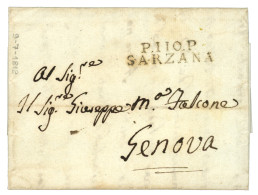 P.110.P
SARZANA
Al Sig.re
Il Sig.re Giuseppe M.a Falcone
Genova